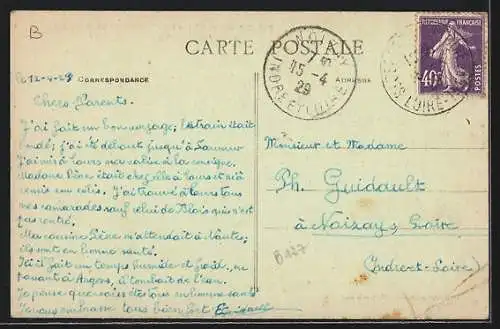 B
CARTE POSTALE
CORRESPONDANCE
ADRESSE
NOIZAY
15 -4
29
INDRE ET LOIRE
REPUBLIQUE FRANÇAISE
40c
POSTES
LOIRE
12-4-29
Chers Parents.
J'ai fait un bon voyage; le train était
bondé; j'ai été debout jusqu'à Saumur
J'ai mis à Tours ma valise à la consigne.
Madame Pène était chez elle à Tours et m'a
remis un colis. J'ai trouvé à Tours tous
mes camarades sauf celui de Blois qui n'est
pas rentré.
Ma cousine Pène m'attendait à Nantes;
ils sont en bonne santé.
Ici il fait un temps humide et froid, en
passant à Angers, il tombait de l'eau.
Je pense que vous êtes tous en bonne santé
Je vous embrasse tous bien fort
Monsieur et Madame
Ph. Guidault
à Noizay, Loire
(Indre-et-Loire)
B137